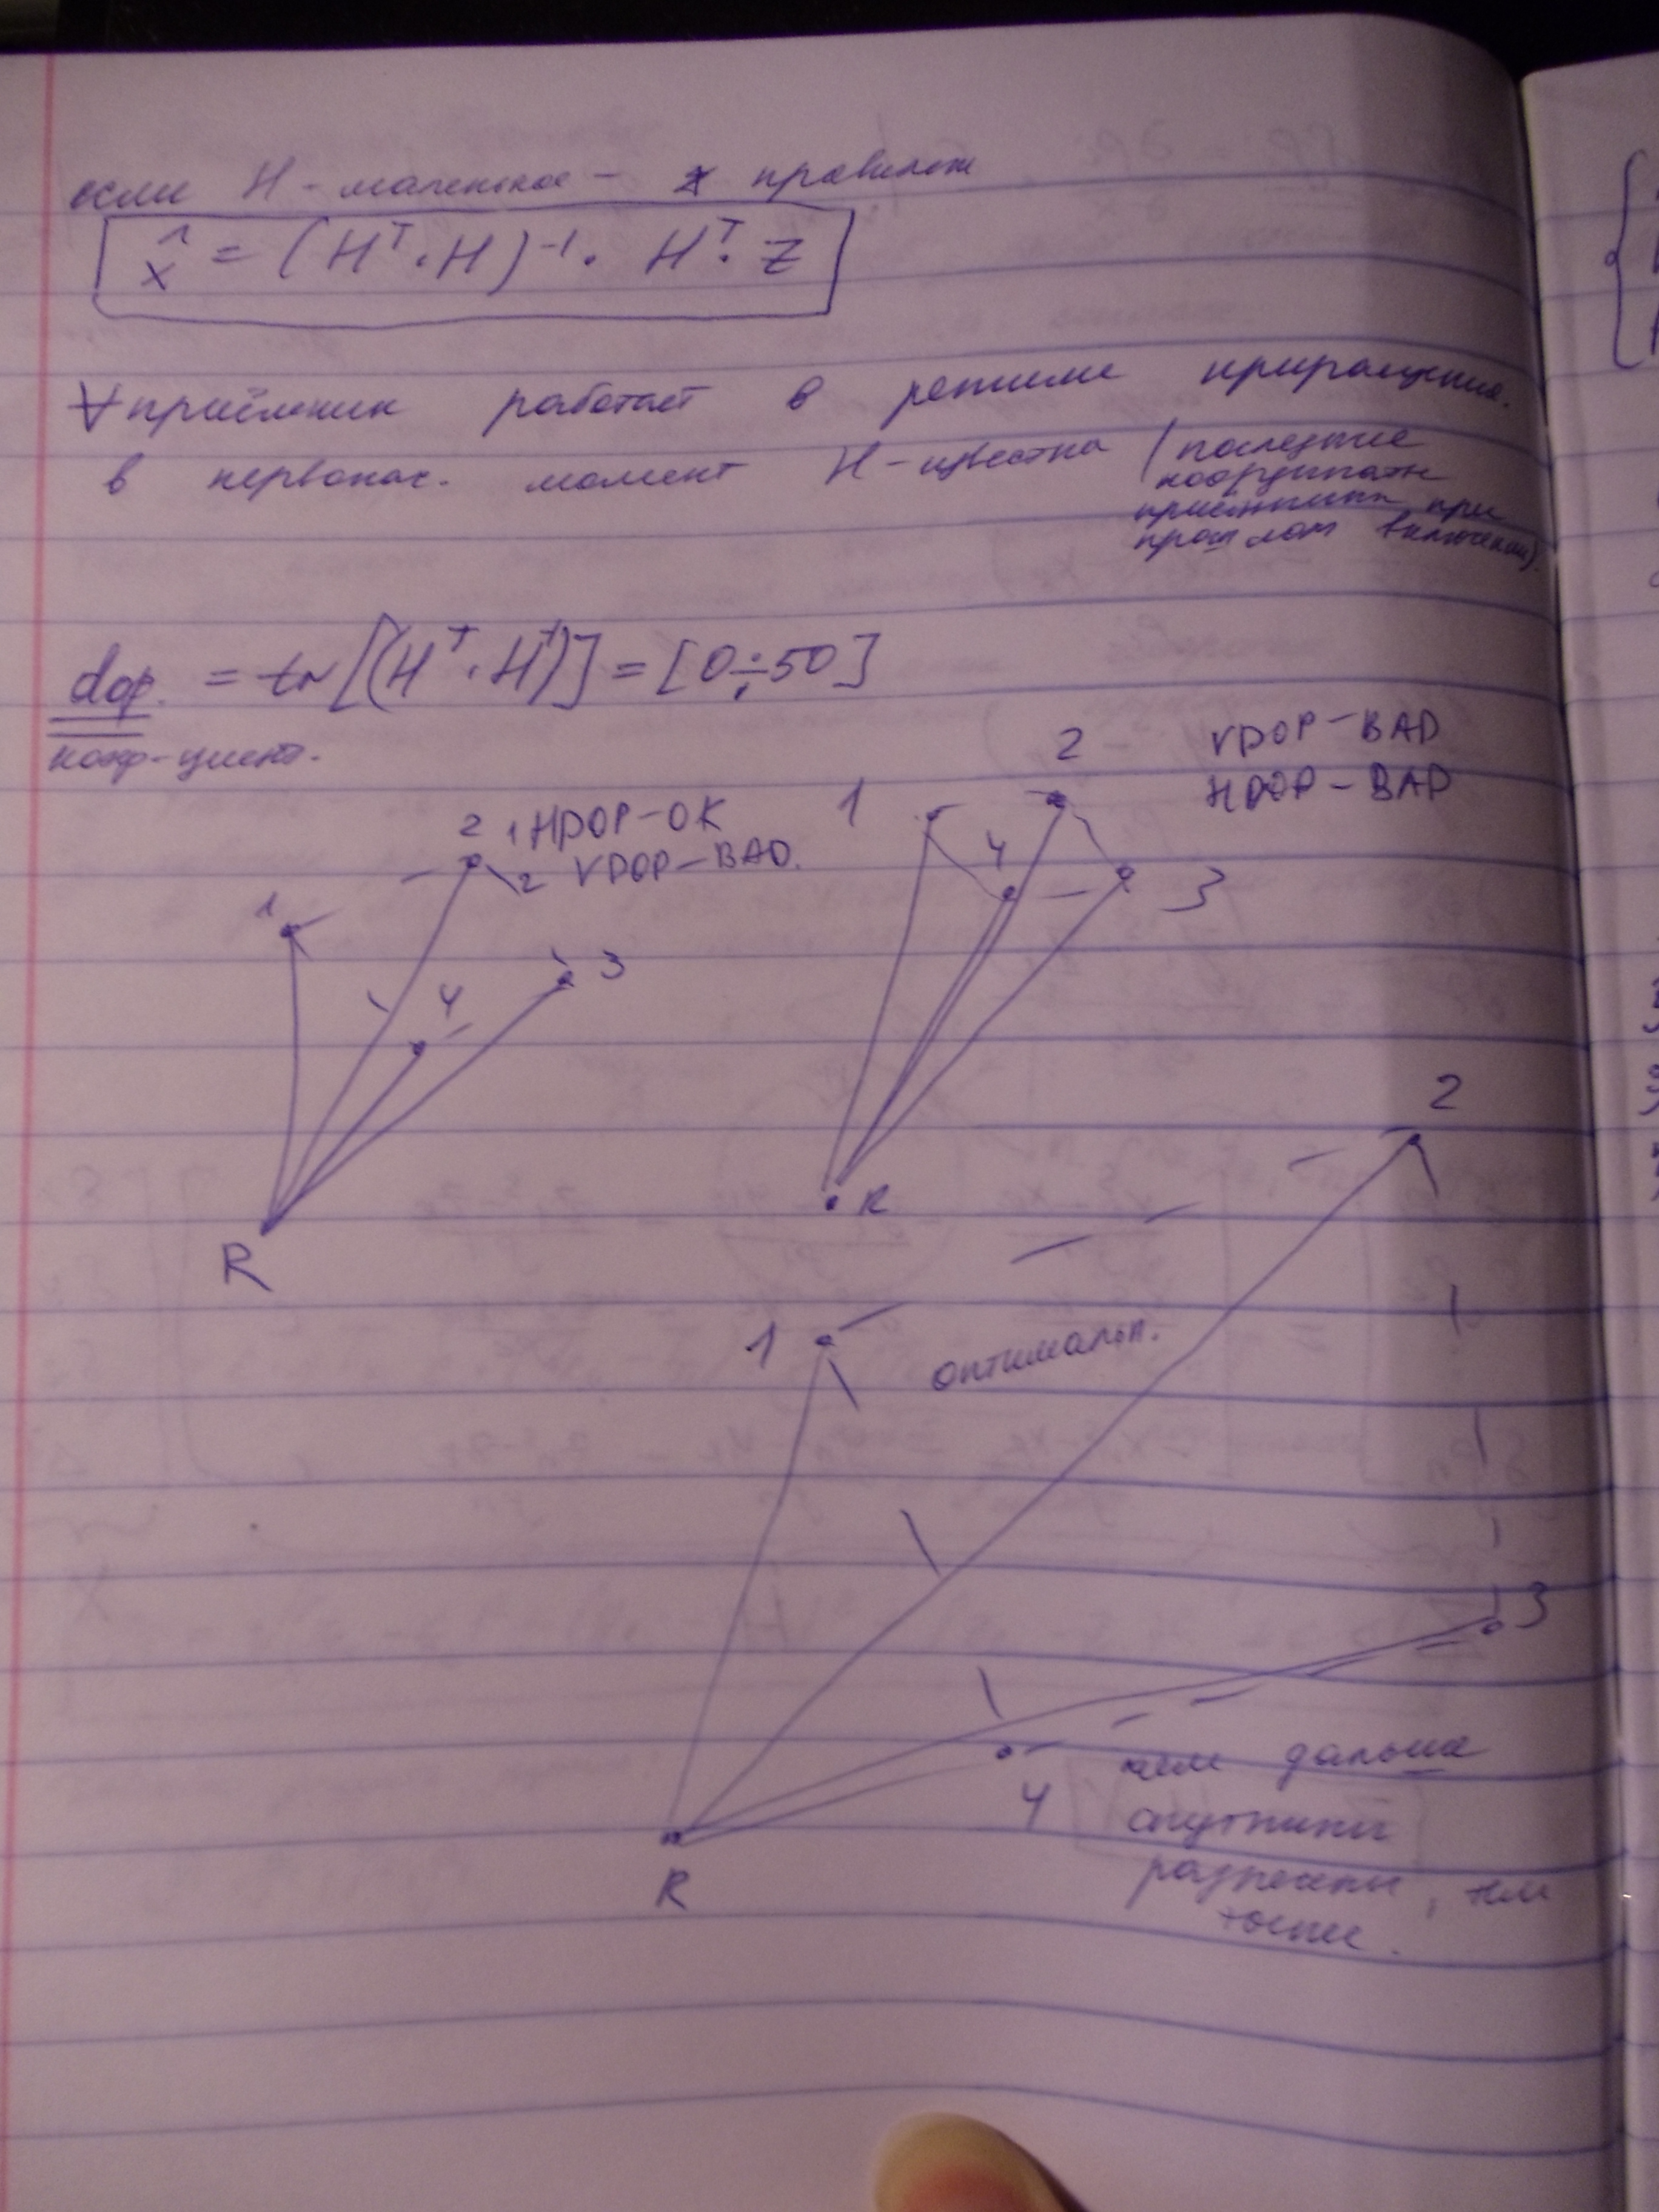 если H - маленькое - x правильн
x̂ = (Hᵀ · H)⁻¹ · Hᵀ · Z
∀ приёмник работает в режиме приращения.
в первонач. момент H - известна (последние
координаты
приёмника при
прошлом включении).
dop. = tr[(Hᵀ · Hᵀ)] = [0÷50]
коэф-циент.
2
VDOP - BAD
HDOP - BAD
1
4
3
R
2
1 HDOP - OK
2 VDOP - BAD.
1
4
3
R
2
1
оптимальн.
3
4
R
чем дальше
спутники
разнесены, тем
точнее.